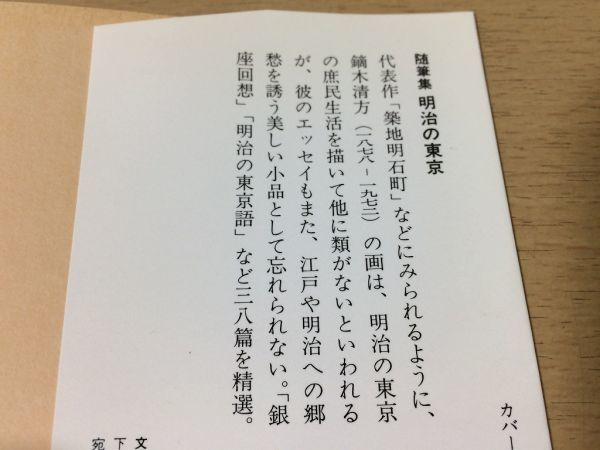 随筆集 明治の東京
代表作「築地明石町」などにみられるように、
鏑木清方（一八七八－一九七二）の画は、明治の東京
の庶民生活を描いて他に類がないといわれる
が、彼のエッセイもまた、江戸や明治への郷
愁を誘う美しい小品として忘れられない。「銀
座回想」「明治の東京語」など三八篇を精選。
カバー
文
下
宛